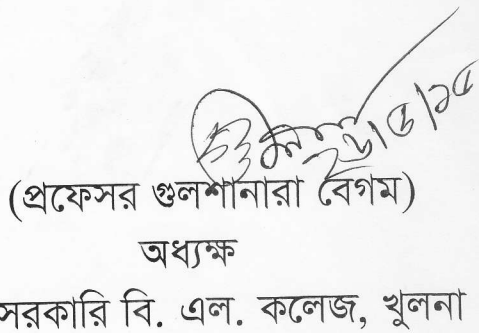 (প্রফেসর গুলশানারা বেগম)
অধ্যক্ষ
সরকারি বি. এল. কলেজ, খুলনা